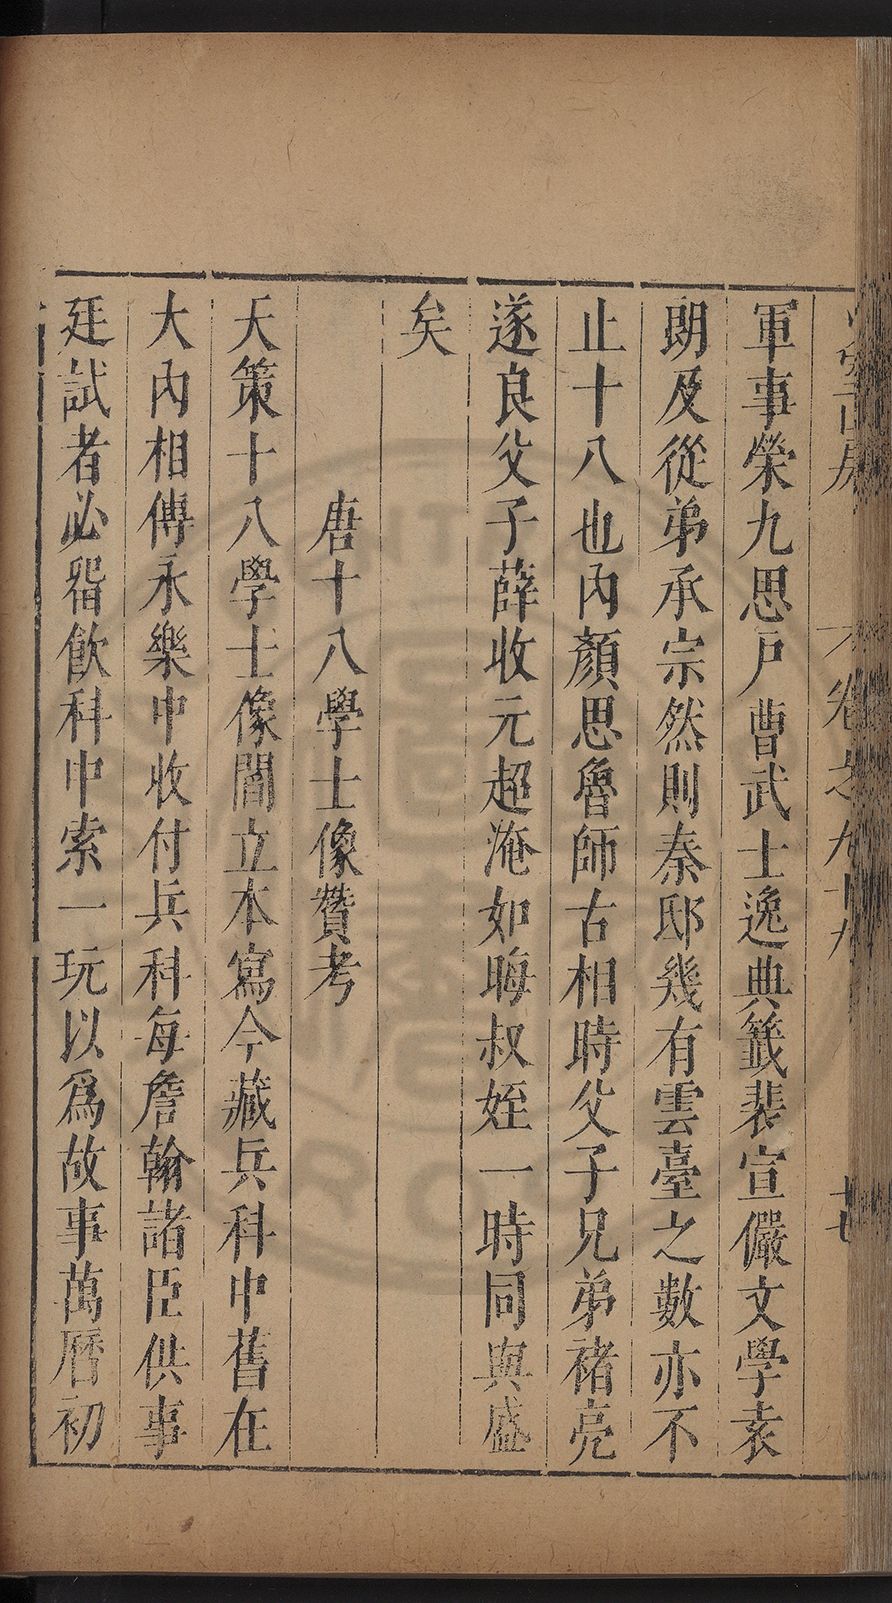 卷之九十九
十七
軍事榮九思戶曹武士逸典籤裴宣儼文學袁
朗及從弟承宗然則秦邸幾有雲臺之數亦不
止十八也內顏思魯師古相時父子兄弟褚亮
遂良父子薛收元超淹如晦叔姪一時同與盛
矣
唐十八學士像贊考
天策十八學士像閻立本寫今藏兵科中舊在
大內相傳永樂中收付兵科每詹翰諸臣供事
廷試者必畱飲科中索一玩以爲故事萬曆初